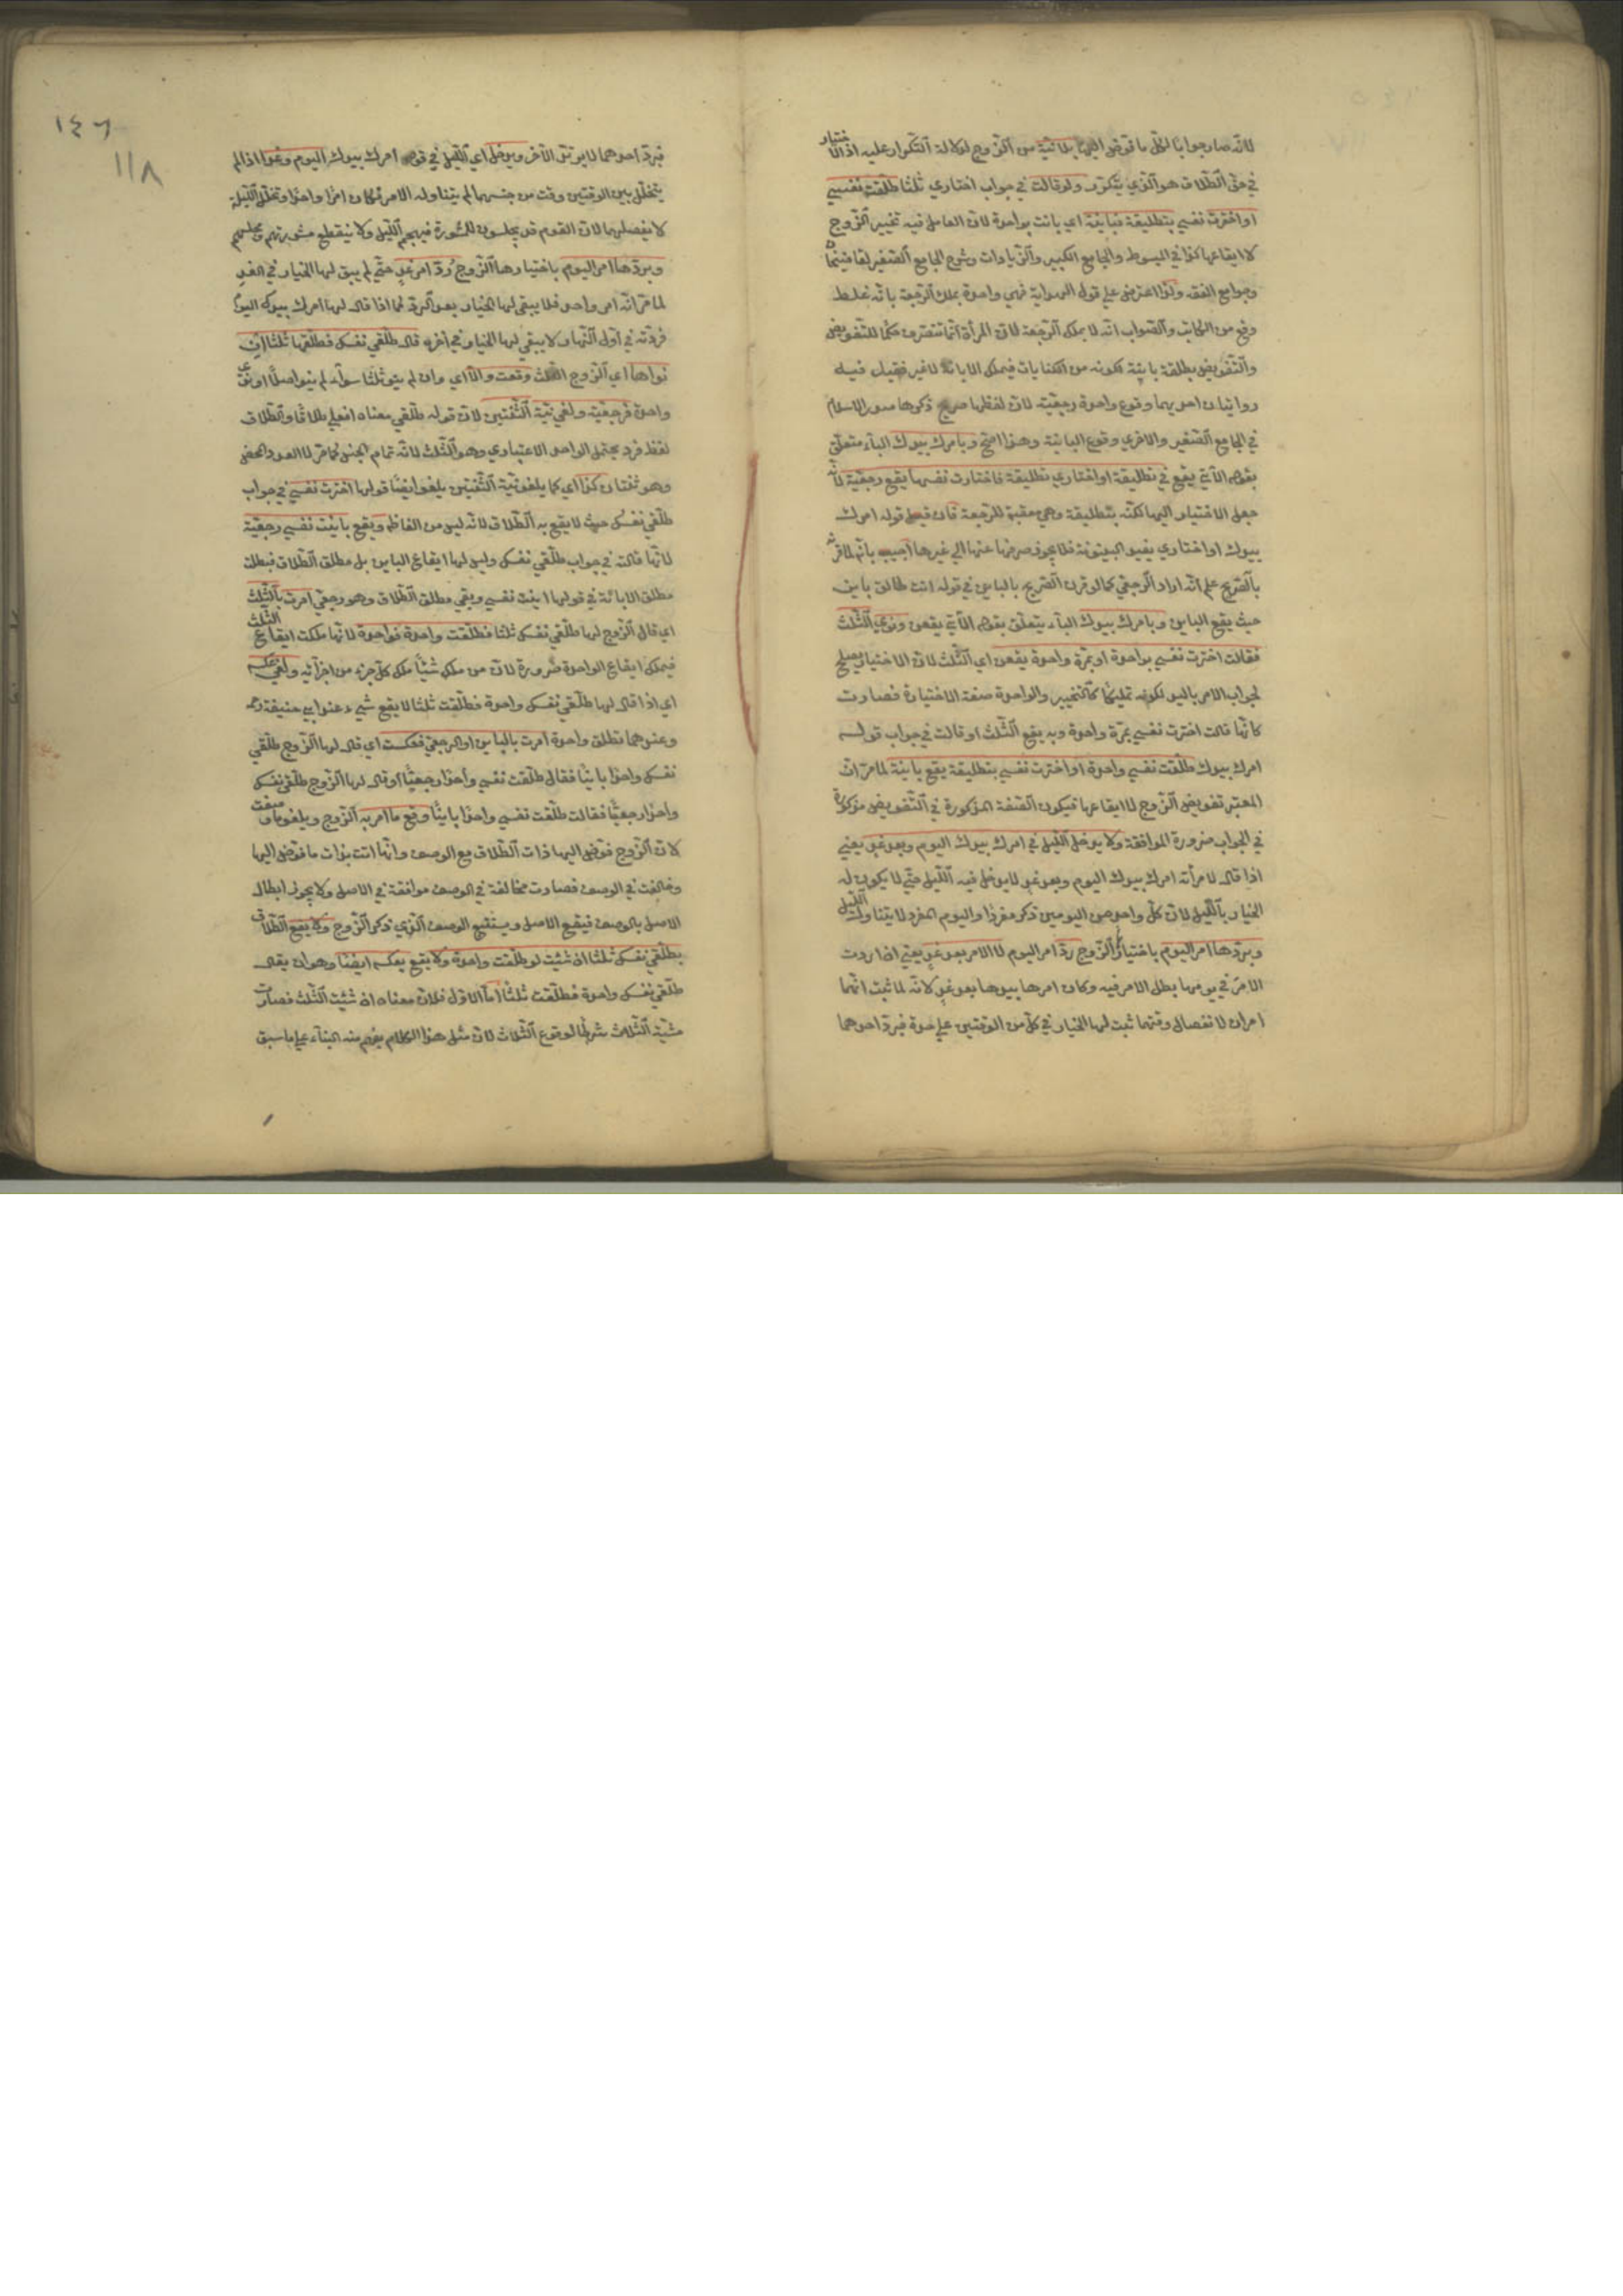 لانه صار جوابا لكل ما فوض اليها بلا نية من الزوج لدلالة التكرار عليه اذ الاختيار
في حق الطلاق هو الذي يتكرر ولو قالت في جواب اختاري ثلثا طلقت نفسي
او اخترت نفسي بتطليقة فبائنة اي بانت بواحدة لان العامل فيه تخيير الزوج
لا ايقاعها كذا في المبسوط والجامع الكبير والزيادات وشروح الجامع الصغير لقاضيخان
وجوامع الفقه ولذا اعترض على قول الهداية فهي واحدة يملك الرجعة بانه غلط
وقع من الكاتب والصواب انه لا يملك الرجعة لان المرأة انما تتصرف حكما للتفويض
والتفويض بطلقة باينة لكونه من الكنايات فيملك الابانة لا غير فقيل فيه
روايتان احديهما وقوع واحدة رجعية لان لفظها صريح ذكرها صدر الاسلام
في الجامع الصغير والاخرى وقوع الباينة وهذا اصح وبامرك بيدك الباء متعلق
بقوله الآتي يقع في تطليقة او اختاري تطليقة فاختارت نفسها يقع رجعية لانه
جعل الاختيار اليها لكنه بتطليقة وهي معقبة للرجعة فان قيل قوله امرك
بيدك او اختاري يفيد البينونة فلا يجوز صرفها عنها الى غيرها اجيب بانه لما قرنه
بالصريح علم انه اراد الرجعي كما لو قرن الصريح بالباين في قوله انت طالق باين
حيث يقع الباين وبامرك بيدك الباء يتعلق بقوله الآتي يقعن ونوى الثلث
فقالت اخترت نفسي بواحدة او بمرة واحدة يقعن اي الثلث لان الاختيار يصلح
لجواب الامر باليد لكونه تمليكا كالتخيير والواحدة صفة الاختيارة فصارت
كانها قالت اخترت نفسي بمرة واحدة وبه يقع الثلث او قالت في جواب قوله
امرك بيدك طلقت نفسي واحدة او اخترت نفسي بتطليقة يقع باينة لما مر ان
المعتبر تفويض الزوج لا ايقاعها فيكون الصفة المذكورة في التفويض مذكورة
في الجواب ضرورة الموافقة ولا يدخل الليل في امرك بيدك اليوم وبعد غد يعني
اذا قال لامرأته امرك بيدك اليوم وبعد غد لا يدخل فيه الليل حتى لا يكون له
الخيار بالليل لان كل واحد من اليومين ذكر مفردا واليوم المفرد لا يتناول الليل
وبردها امر اليوم باختيار الزوج رد امر اليوم لا الامر بعد غد يعني اذا ردت
الامر في يومها بطل الامر فيه وكان امرها بيدها بعد غد لانه لما ثبت انهما
امران لانفصال وقتهما ثبت لها الخيار في كل من الوقتين على حدة فبرد احدهما
١٤٦
١١٨
فبرد احدهما لا يرتد الآخر ويدخل اي الليل في قوله امرك بيدك اليوم وغدا اذا لم
يتخلل بين الوقتين وقت من جنسهما لم يتناوله الامر فكان امرا واحدا وتخلل الليلة
لا يفصلهما لان القوم قد يجلسون للمشورة فيهجم الليل ولا ينقطع مشورتهم ومجلسهم
وبردها امر اليوم باختيارها الزوج رد امر غد حتى لم يبق لها الخيار في الغد
لما مر انه امر واحد فلا يبقى لها الخيار بعد الرد كما اذا قال لها امرك بيدك اليوم
فردته في اول النهار لا يبقى لها الخيار في آخره قال طلقي نفسك فطلقها ثلثا ان
نواها اي الزوج الثلث وقعت والا اي وان لم ينو ثلثا سواء لم ينو اصلا او نوى
واحدة فرجعية ولغي نية الثنتين لان قوله طلقي معناه افعلي طلاقا والطلاق
لفظ فرد يحتمل الواحد الاعتباري وهو الثلث لانه تمام الجنس كما مر لا العدد المحض
وهو ثنتان كذا اي كما يلغو نية الثنتين يلغو ايضا قولها اخترت نفسي في جواب
طلقي نفسك حيث لا يقع به الطلاق لانه ليس من الفاظه ويقع بابنت نفسي رجعية
لانها قالت في جواب طلقي نفسك وليس لها ايقاع الباين بل مطلق الطلاق فبطلت
مطلق الابانة في قولها ابنت نفسي وبقي مطلق الطلاق وهو رجعي امرت بالثلث
اي قال الزوج لها طلقي نفسك ثلثا فطلقت واحدة فواحدة لانها ملكت ايقاع الثلث
فيملك ايقاع الواحدة ضرورة لان من ملك شيئا ملك كل جزء من اجزائه ولغي عكسه
اي اذا قال لها طلقي نفسك واحدة فطلقت ثلثا لا يقع شيء عند ابي حنيفة رحمه
وعندهما تطلق واحدة امرت بالباين او الرجعي فعكست اي قال لها الزوج طلقي
نفسك واحدا باينا فقال طلقت نفسي واحدا رجعيا او قال لها الزوج طلقي نفسك
واحدا رجعيا فقالت طلقت نفسي واحدا باينا وقع ما امر به الزوج ويلغو ما وصفت
لان الزوج فوض اليها ذات الطلاق مع الوصف وانها اتت بذات ما فوض اليها
وخالفت في الوصف فصارت مخالفة في الوصف موافقة في الاصل ولا يجوز ابطال
الاصل بالوصف فيقع الاصل ويستتبع الوصف الذي ذكر الزوج ولا يقع الطلاق
بطلقي نفسك ثلثا ان شئت لو طلقت واحدة ولا يقع بعكسه ايضا وهو ان يقال
طلقي نفسك واحدة فطلقت ثلثا اما الاول فلان معناه ان شئت الثلث فصارت
مشية الثلاث شرطا لوقوع الثلاث لان مثل هذا الكلام يفهم منه البناء على ما سبق